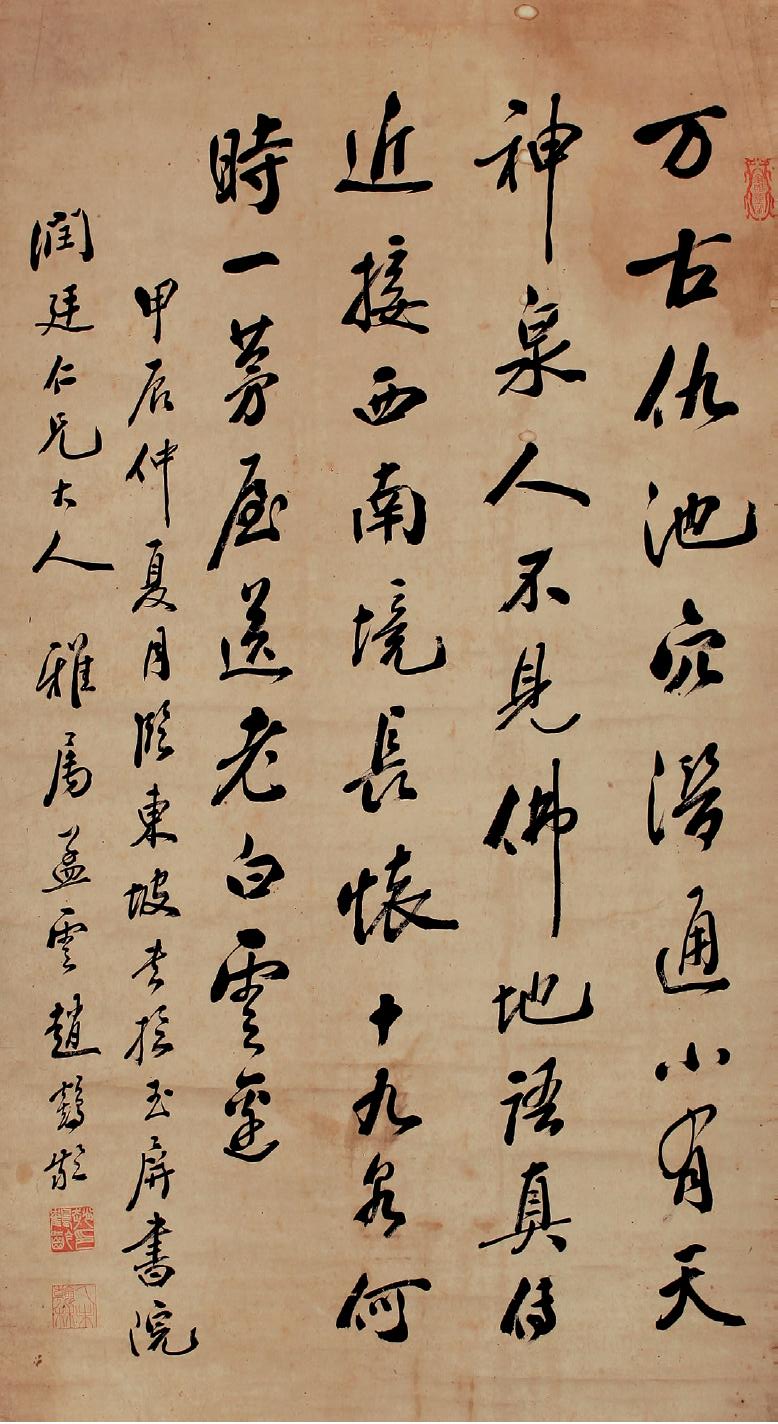 万古仇池穴潛通小有天
神泉人不見佛地語真傳
近接西南境長懷十九泉何
時一茅屋送老白雲邊
甲辰仲夏月臨東坡書於玉屏書院
潤廷仁兄大人 雅屬 孟雲趙鶴齡